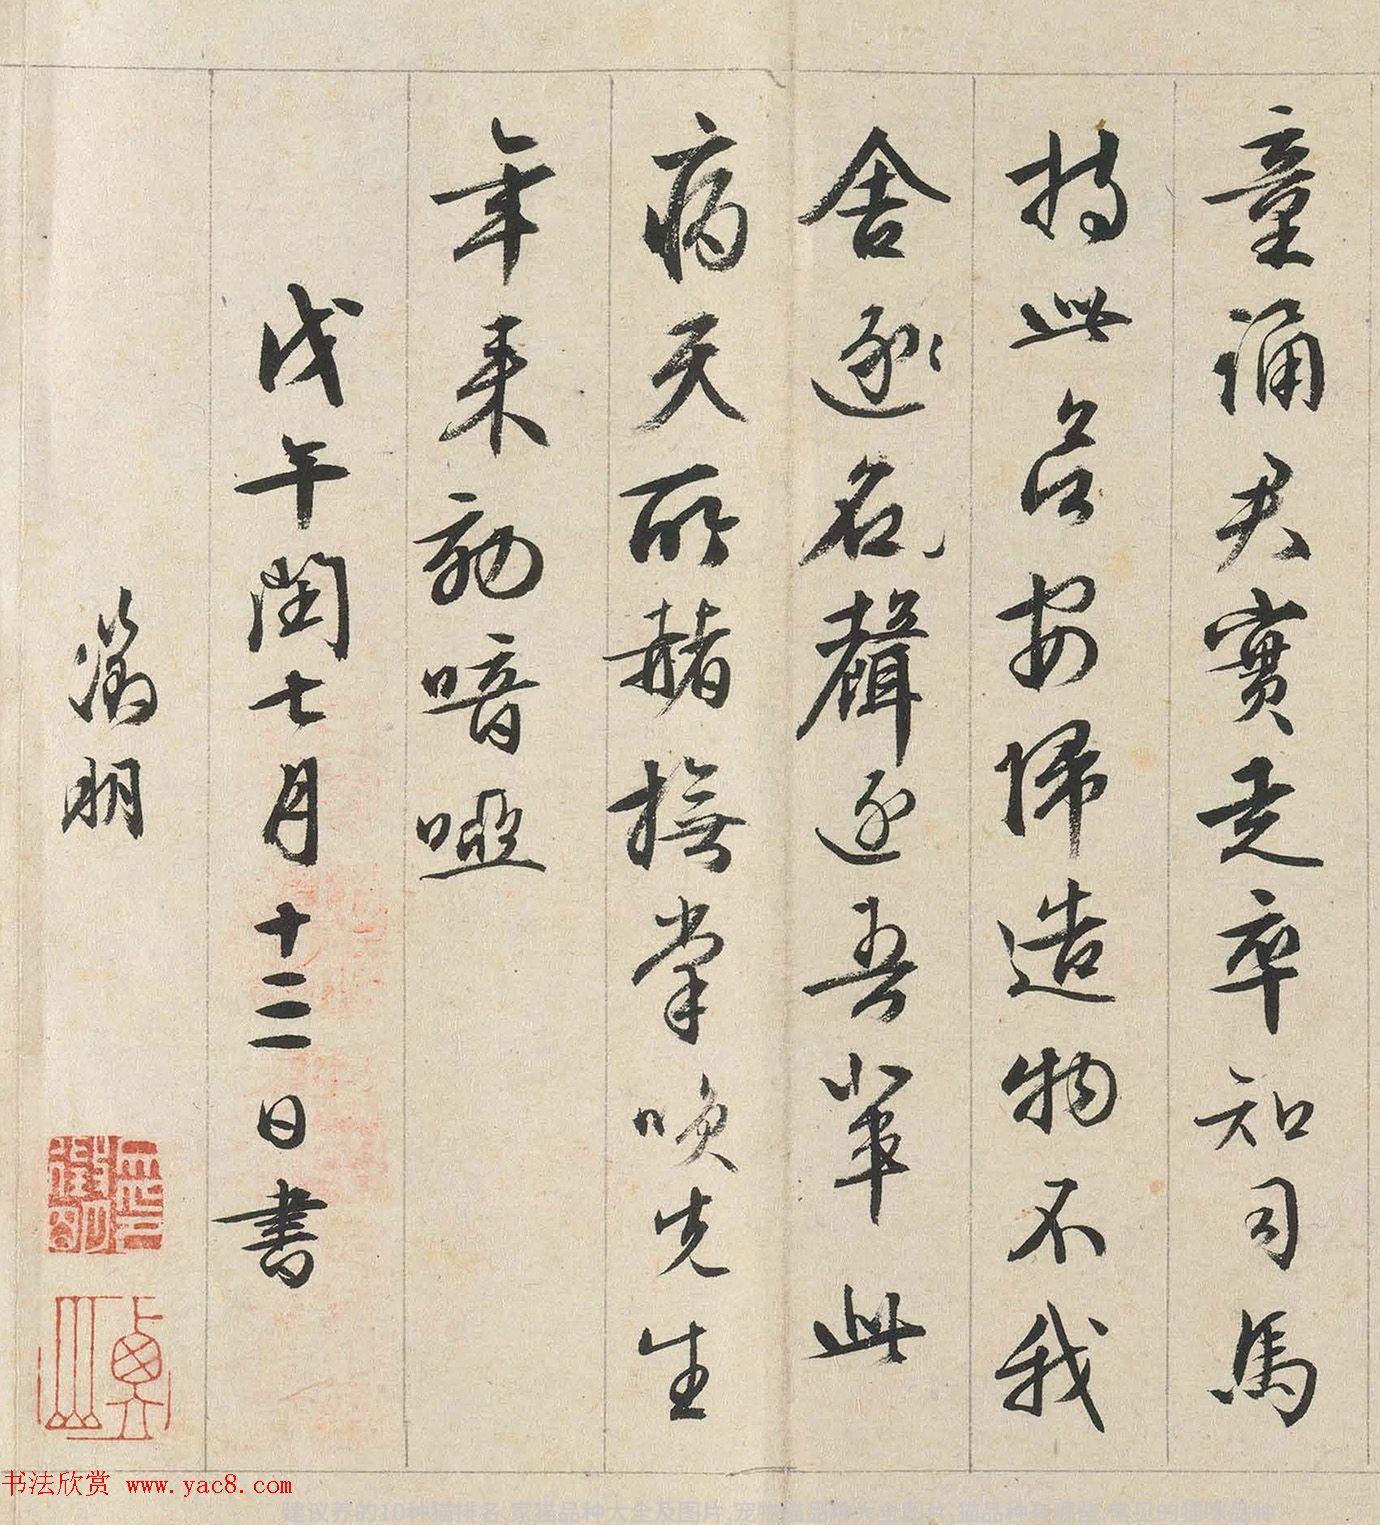 童誦君實走卒知司馬
持此名安歸造物不我
舍逐名聲逐吾輩此
病天所赭撫掌咲先生
年来効喑啞
戊午閏七月十二日書
徵明
书法欣赏 www.yac8.com